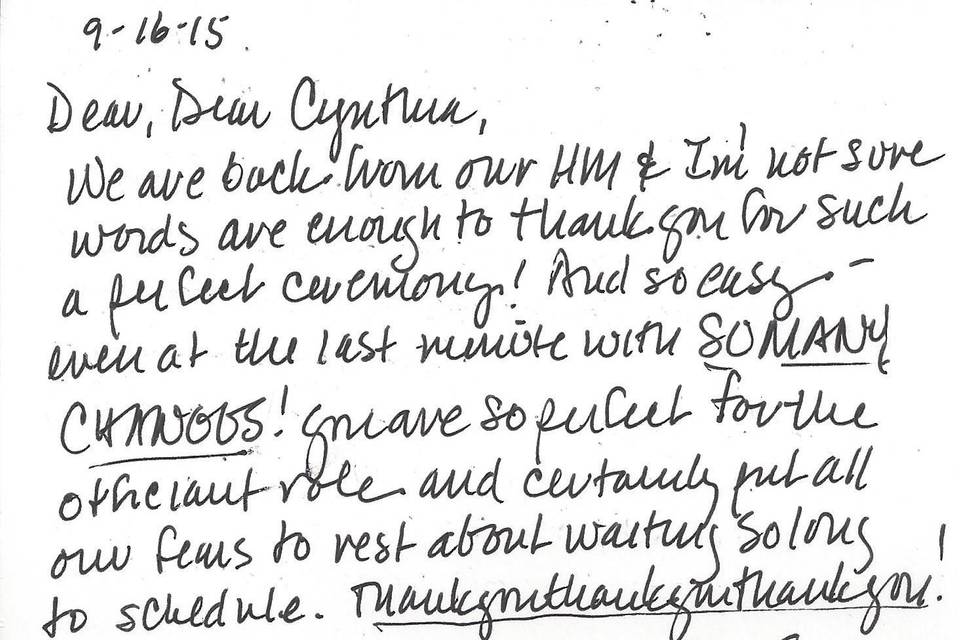 9-16-15
Dear, Dear Cynthia,
We are back from our HM & I'm not sure
words are enough to thank you for such
a perfect ceremony! And so easy -
even at the last minute with SO MANY
CHANGES! you are so perfect for the
officiant role and certainly put all
our fears to rest about waiting so long
to schedule. Thankyouthankyouthankyou!